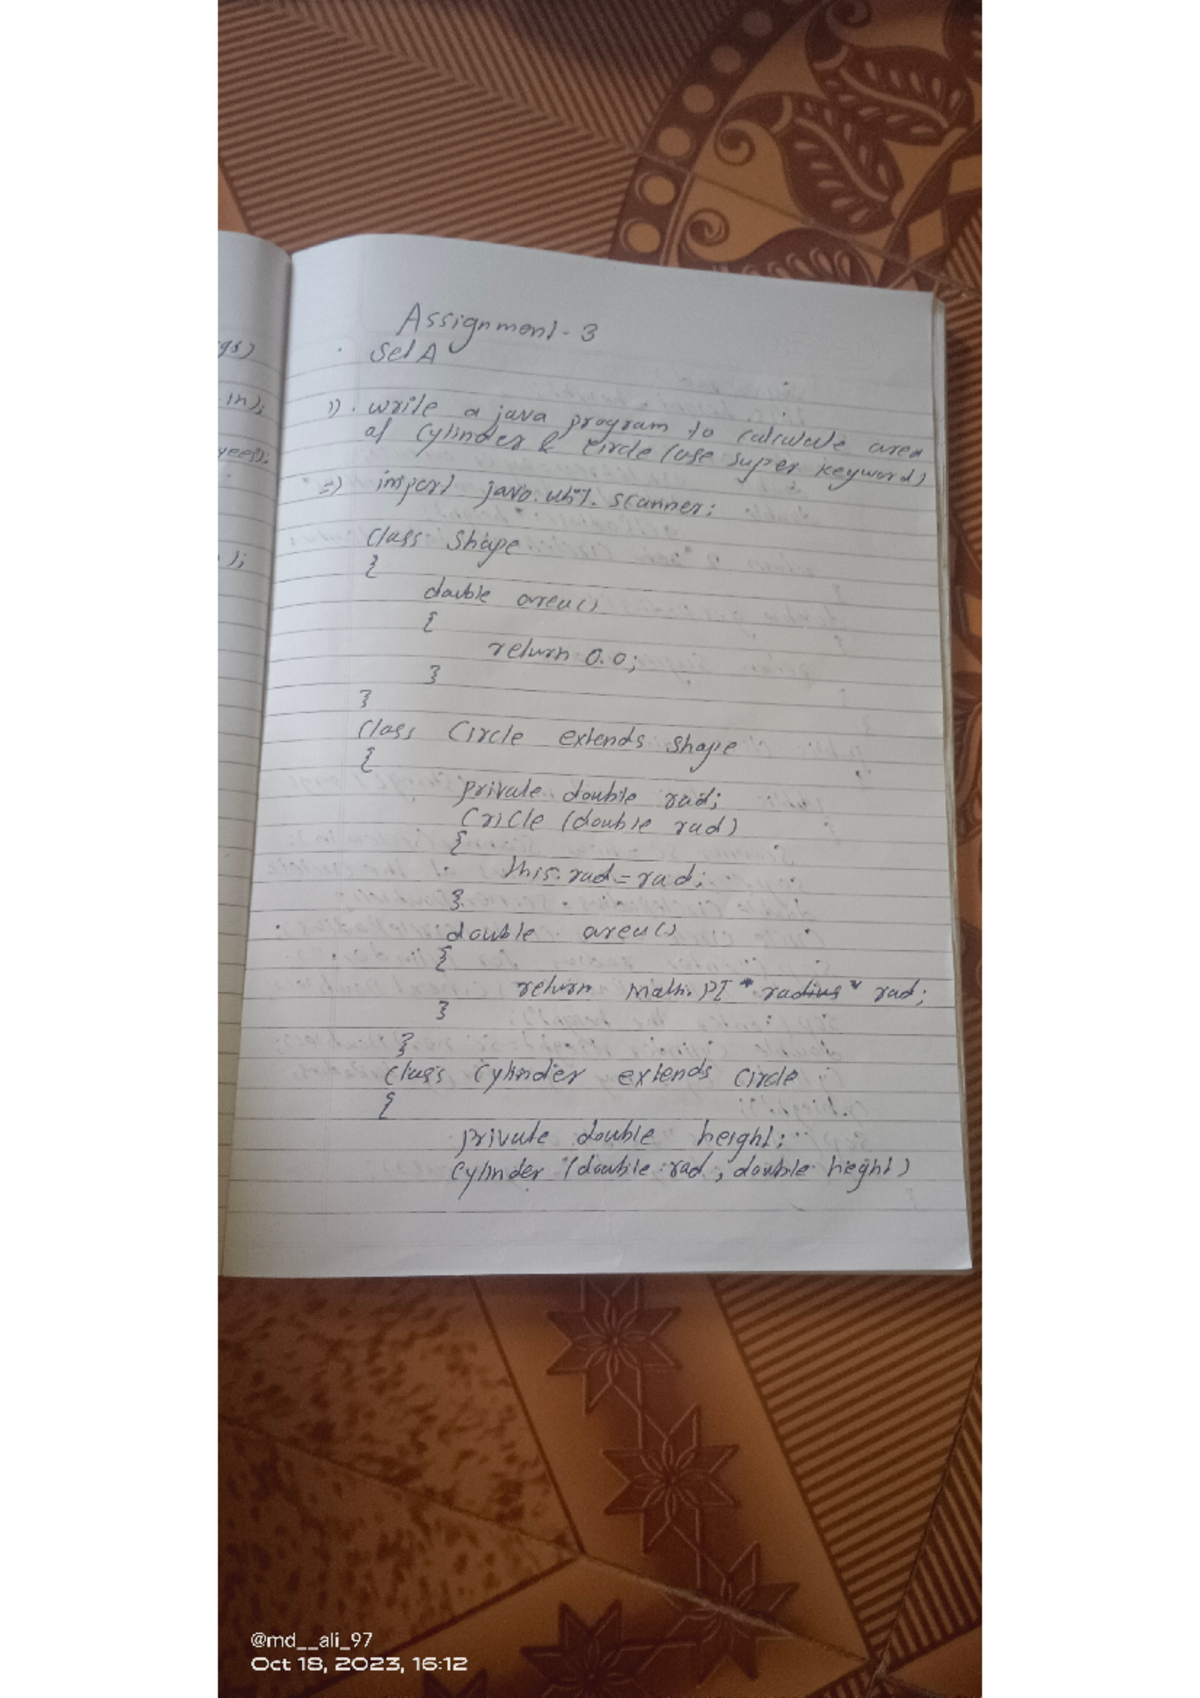 gs)
in);
yees);
);
Assignment - 3
Set A
1). write a java program to calculate area
of Cylinder & Circle (use super keyword)
=) import java.util.scanner;
class Shape
{
double area()
{
return 0.0;
}
}
Class Circle extends shape
{
private double rad;
Cricle (double rad)
{
this.rad = rad;
}
double area()
{
return Math.PI * radius * rad;
}
}
class Cylinder extends Circle
{
private double height;
Cylinder (double rad, double hieght)
@md__ali_97
Oct 18, 2023, 16:12